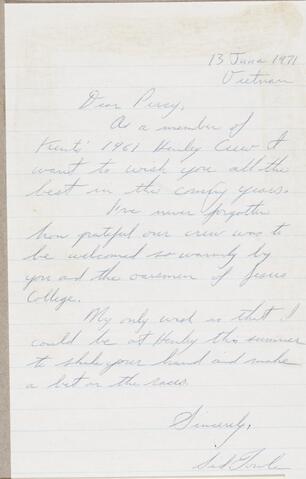 13 June 1971
Vietnam
Dear Percy,
As a member of
Kent's 1961 Henley Crew I
want to wish you all the
best in the coming years.
I've never forgotten
how grateful our crew was to
be welcomed so warmly by
you and the oarsmen of Jesus
College.
My only wish is that I
could be at Henley this summer
to shake your hand and make
a bet on the races.
Sincerely,